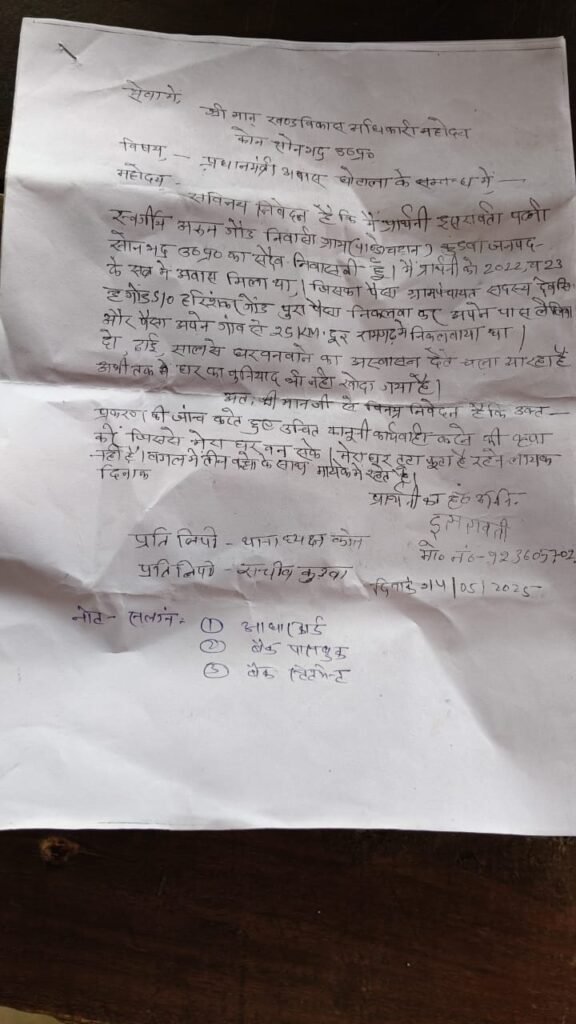 सेवामें,
श्री मान खण्डविकास अधिकारी महोदय
कोन सोनभद्र उ०प्र०
विषय - प्रधानमंत्री अवास घोटाला के सम्बन्ध में -
महोदय,
सविनय निवेदन है कि मैं प्रार्थनी इसरावती पत्नी
स्वर्गीय अरुन गोंड निवासी ग्राम कुडवा जनपद-
सोनभद्र उ०प्र० का सदैव निवासनी हुँ। में प्रार्थनी को 2022, व 23
के सत्र में अवास मिला था, जिसका पैसा ग्रामपंचायत सदस्य देवसि-
ह गोंड S/O हरिशंकर गोंड पुरा पैसा निकलवा कर अपने पास ले लिया
और पैसा अपने गांव से 25 KM. दूर रामगढ़ में निकलवाया था।
दो ढाई, सालसे घर बनवाने का अस्वासन देते चला आ रहा है
अभी तक मे घर का बुनियाद भी नही खोदा गया है।
अत: श्री मानजी से विनम्र निवेदन है कि उक्त-
प्रकरण की जांच करते हुए उचित कानूनी कार्यवाही करने की कृपा
करें जिससे मेरा घर बन सके। मेरा घर टुटा फुटा है रहने लायक
नही है। में तीन के साथ मायके मे रहते है।
दिनांक
प्रार्थनी का
इसरावती
प्रति लिपी - थाना ध्यक्ष कोन
मो० नं०- 923605702
प्रति लिपी - सचीव कुडवा
दिनांक 14/05/2025
नोट - संलग्न -
① आधार कार्ड
② बैंक पासबुक
③ बैंक स्टेटमेन्ट